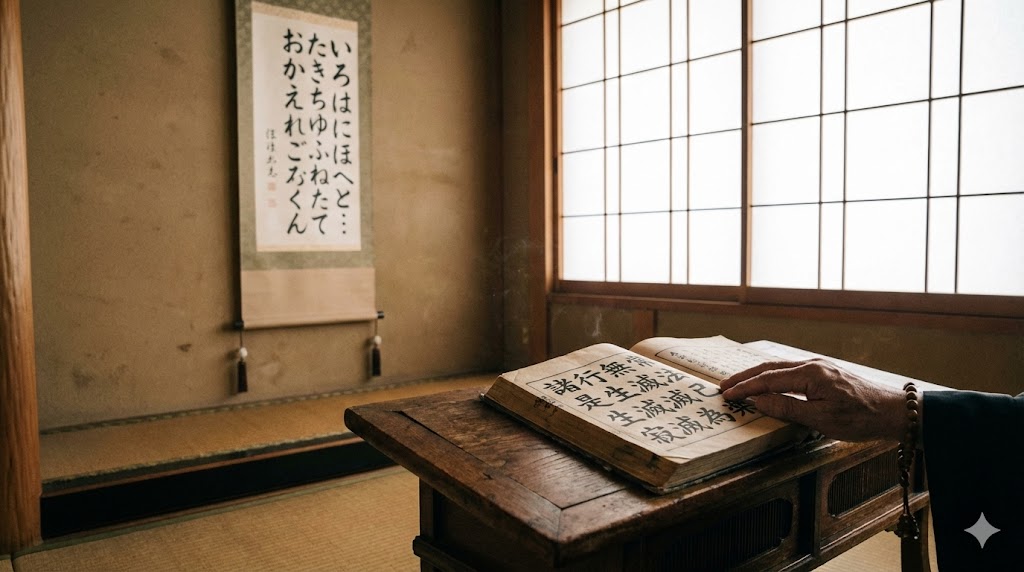 いろはにほへと…
たきちゆふねたて
おかえれごくん
諸行無常
是生滅法
生滅滅已
寂滅為樂